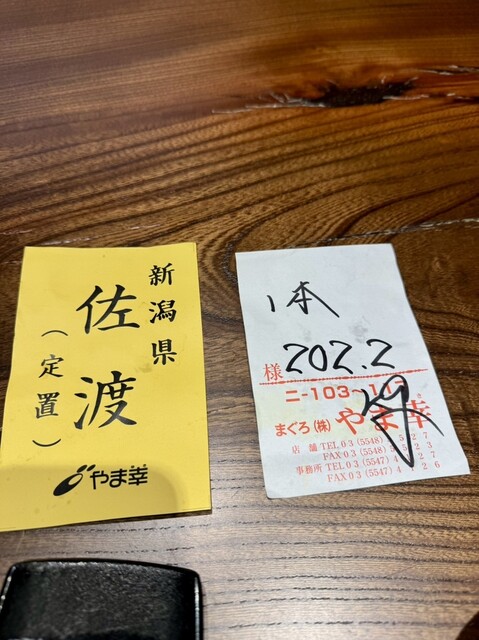 新潟県
佐渡
（定置）
やま幸
1本
202.2
様
ニ-103~1
まぐろ(株) やま幸
店 舗 TEL 03 (5548)
FAX 03 (5548)
事務所 TEL 03 (5547)
FAX 03 (5547)